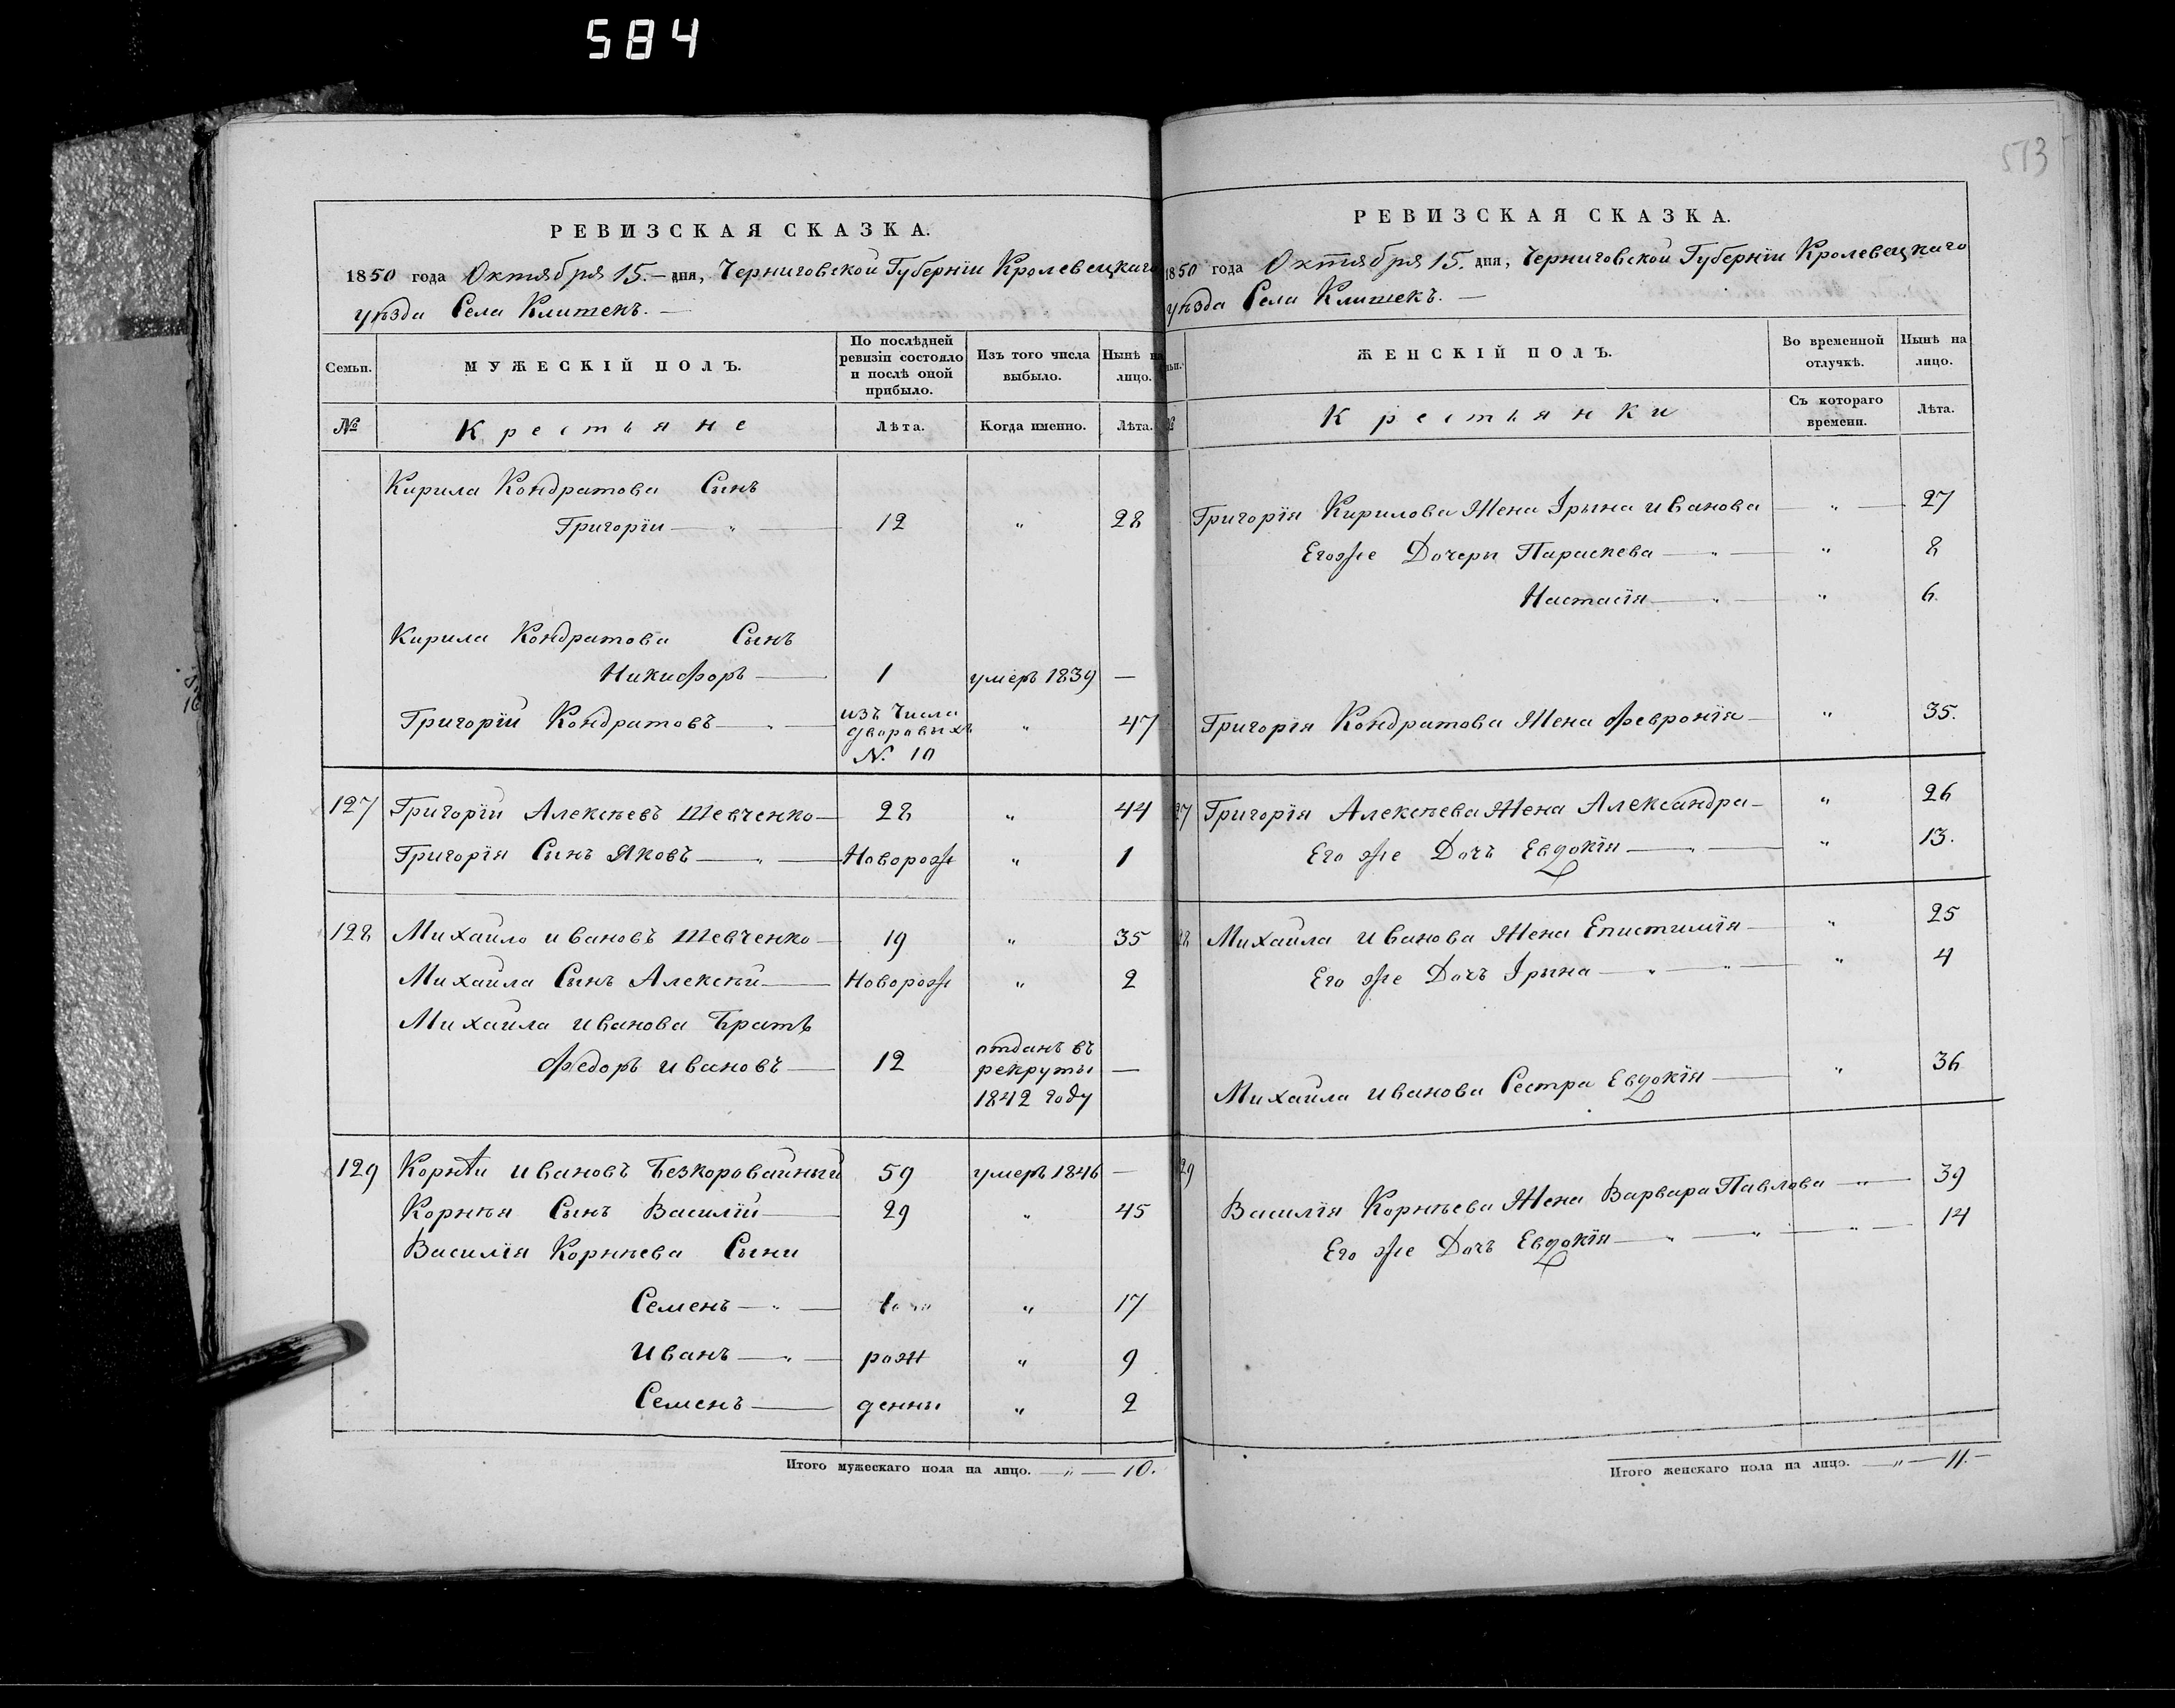 584
513
РЕВИЗСКАЯ СКАЗКА.
1850 года Октября 15.— дня, Черниговской Губерніи Кролевецкаго
уѣзда Села Клишекъ. —
Семьи. МУЖЕСКІЙ ПОЛЪ. По послѣдней ревизіи состояло и послѣ оной прибыло. Изъ того числа выбыло. Нынѣ на лицо.
№ Крестьяне Лѣта. Когда именно. Лѣта.
Кирила Кондратова Сынъ
Григоріи — „ — 12 „ 28
Кирила Кондратова Сынъ
Никифоръ — 1 умеръ 1839 —
Григорій Кондратовъ — „ — изъ числа дворовыхъ N. 10 „ 47
127 Григорій Алексѣевъ Шевченко — 28 „ 44
Григорія Сынъ Яковъ — „ — Новорож „ 1
128 Михайло Ивановъ Шевченко — 19 „ 35
Михайла Сынъ Алексѣй — Новорож „ 2
Михайла Иванова Братъ
Федоръ Ивановъ — 12 отданъ въ рекруты 1842 году —
129 Корнѣи Ивановъ Безкоровайный 59 умеръ 1846 —
Корнѣя Сынъ Василій — 29 „ 45
Василія Корнѣева Сыни
Семенъ — „ — „ 17
Иванъ — „ — рож „ 9
Семенъ — денны „ 2
Итого мужескаго пола на лицо. — „ — 10.
РЕВИЗСКАЯ СКАЗКА.
1850 года Октября 15. дня, Черниговской Губерніи Кролевецкаго
уѣзда Села Клишекъ. —
ЖЕНСКІЙ ПОЛЪ. Во временной отлучкѣ. Нынѣ на лицо.
Крестьянки Съ котораго времени. Лѣта.
Григорія Кирилова Жена Ірына Иванова „ — 27
Егоже Дочеры Параскева — „ — „ 8
Настасія — „ — „ 6.
Григорія Кондратова Жена Февронія — „ 35.
27 Григорія Алексѣева Жена Александра — „ 26
Его же Дочъ Евдокія — „ — „ 13.
28 Михайла Иванова Жена Епистимія — „ 25
Его же Дочъ Ірына — „ — „ — „ 4
Михайла Иванова Сестра Евдокія — „ 36
29 Василія Корнѣева Жена Варвара Павлова — „ — 39
Его же Дочъ Евдокія — „ — „ — „ — 14
Итого женскаго пола на лицо. — „ — 11. —